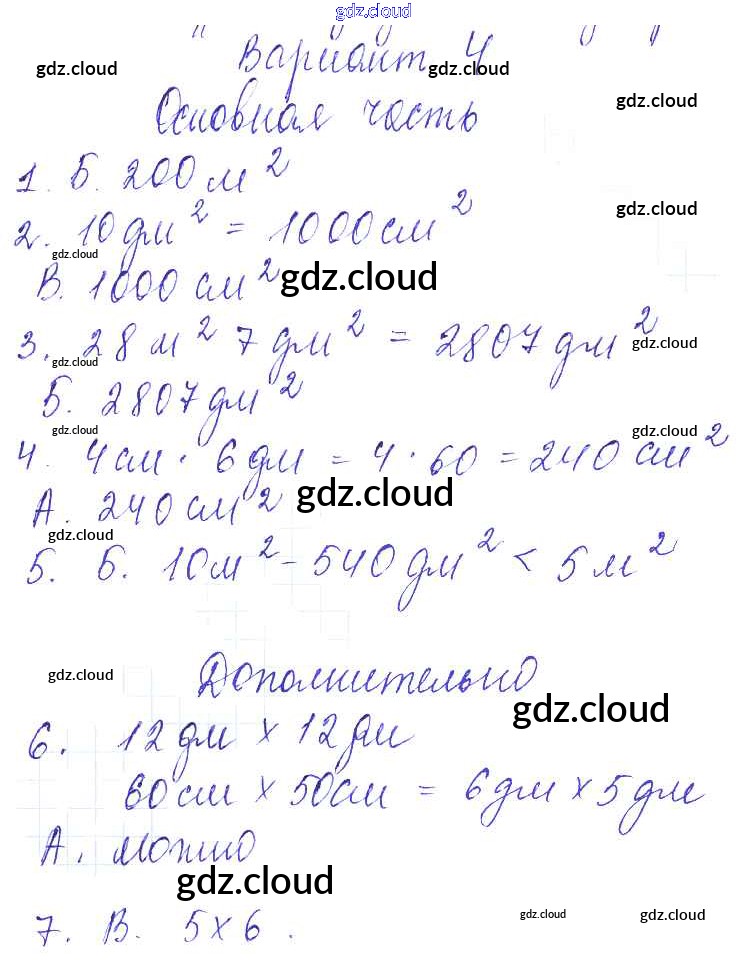 gdz.cloud
Вариант 4
gdz.cloud gdz.cloud
gdz.cloud
Основная часть
1. Б. 200 м²
gdz.cloud
2. 10 дм² = 1000 см²
gdz.cloud
В. 1000 см²
gdz.cloud
3. 28 м² 7 дм² = 2807 дм²
gdz.cloud gdz.cloud
Б. 2807 дм²
gdz.cloud gdz.cloud
4. 4 см · 6 дм = 4 · 60 = 240 см²
А. 240 см²
gdz.cloud
gdz.cloud
5. Б. 10 м² - 540 дм² < 5 м²
gdz.cloud
Дополнительно
gdz.cloud
6. 12 дм × 12 дм
60 см × 50 см = 6 дм × 5 дм
А. можно
gdz.cloud
7. В. 5×6.
gdz.cloud gdz.cloud